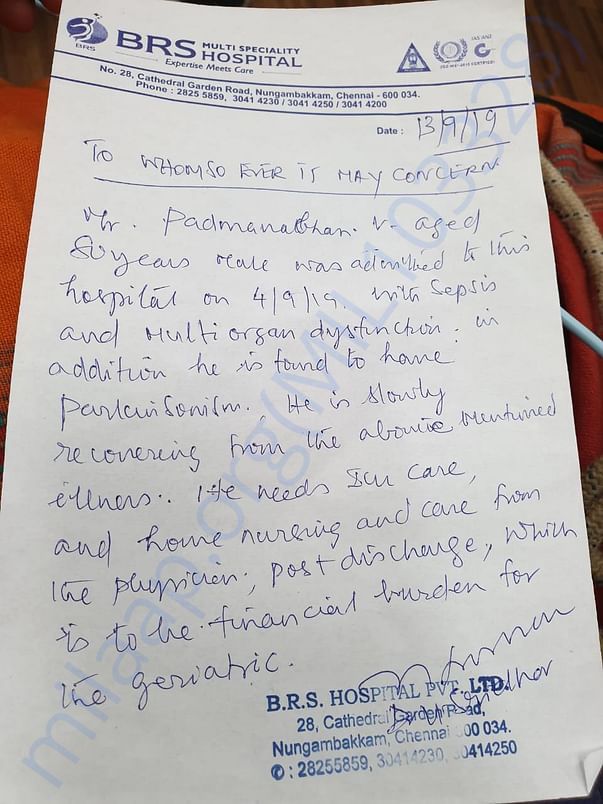 BRS
BRS MULTI SPECIALITY
HOSPITAL
Expertise Meets Care
No. 28, Cathedral Garden Road, Nungambakkam, Chennai - 600 034.
Phone : 2825 5859, 3041 4230 / 3041 4250 / 3041 4200
Date : 13/9/19
TO WHOMSO EVER IT MAY CONCERN
Mr. Padmanabhan. V. aged
80 years male was admitted to this
hospital on 4/9/19. with Sepsis
and multi organ dysfunction. in
addition he is found to have
Parkinsonism. He is slowly
recovering from the above mentioned
illness. He needs ICU care,
and home nursing and care from
the physician, post discharge, which
is to be financial burden for
the geriatric.
B.R.S. HOSPITAL PVT. LTD.
28, Cathedral Garden Road,
Nungambakkam, Chennai 600 034.
✆ : 28255859, 30414230, 30414250
milaap.org(MIL103329)